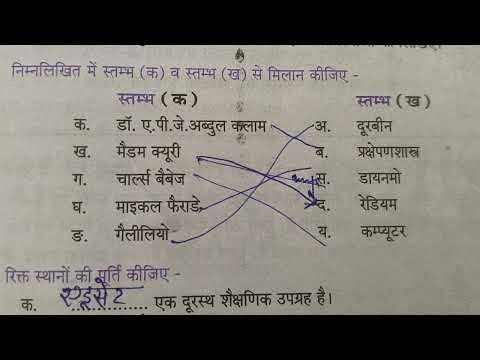 निम्नलिखित में स्तम्भ (क) व स्तम्भ (ख) से मिलान कीजिए -
स्तम्भ ( क ) स्तम्भ ( ख )
क. डॉ. ए.पी.जे.अब्दुल कलाम अ. दूरबीन
ख. मैडम क्यूरी ब. प्रक्षेपणशास्त्र
ग. चार्ल्स बैबेज स. डायनमो
घ. माइकल फैराडे द. रेडियम
ङ. गैलीलियो य. कम्प्यूटर
रिक्त स्थानों की पूर्ति कीजिए -
क. एडूसेट एक दूरस्थ शैक्षणिक उपग्रह है।